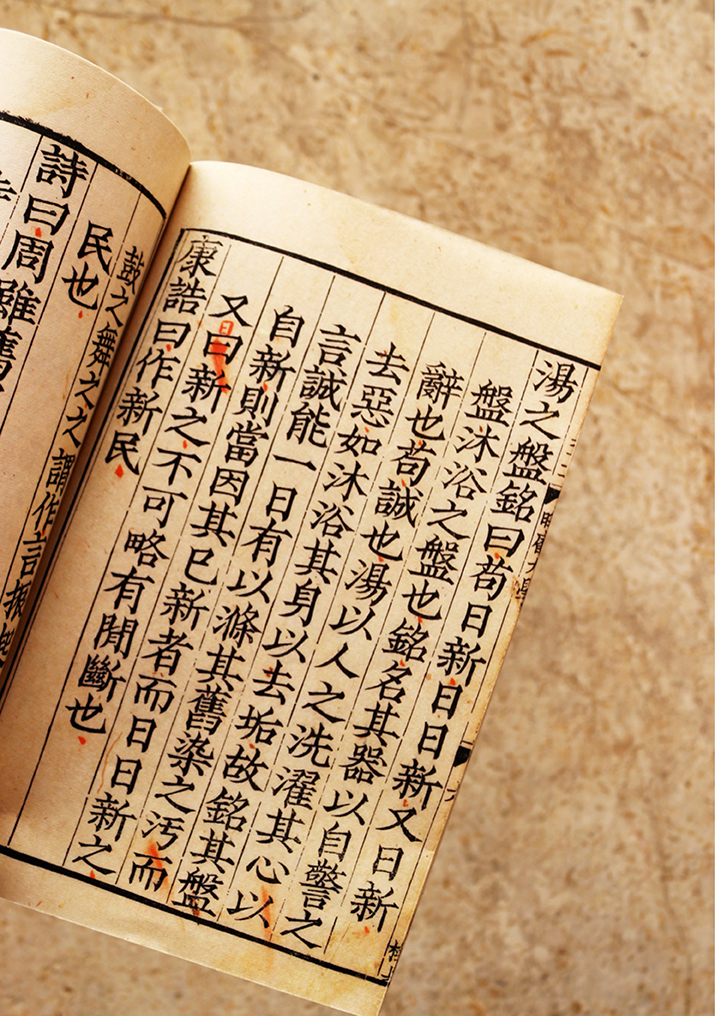 湯之盤銘曰苟日新日日新又日新
盤沐浴之盤也銘名其器以自警之
辭也苟誠也湯以人之洗濯其心以
去惡如沐浴其身以去垢故銘其盤
言誠能一日有以滌其舊染之汚而
自新則當因其已新者而日日新之
又曰新之不可略有閒斷也
日
康誥曰作新民
鼓之舞之之謂作言振起
民也
詩曰周雖舊